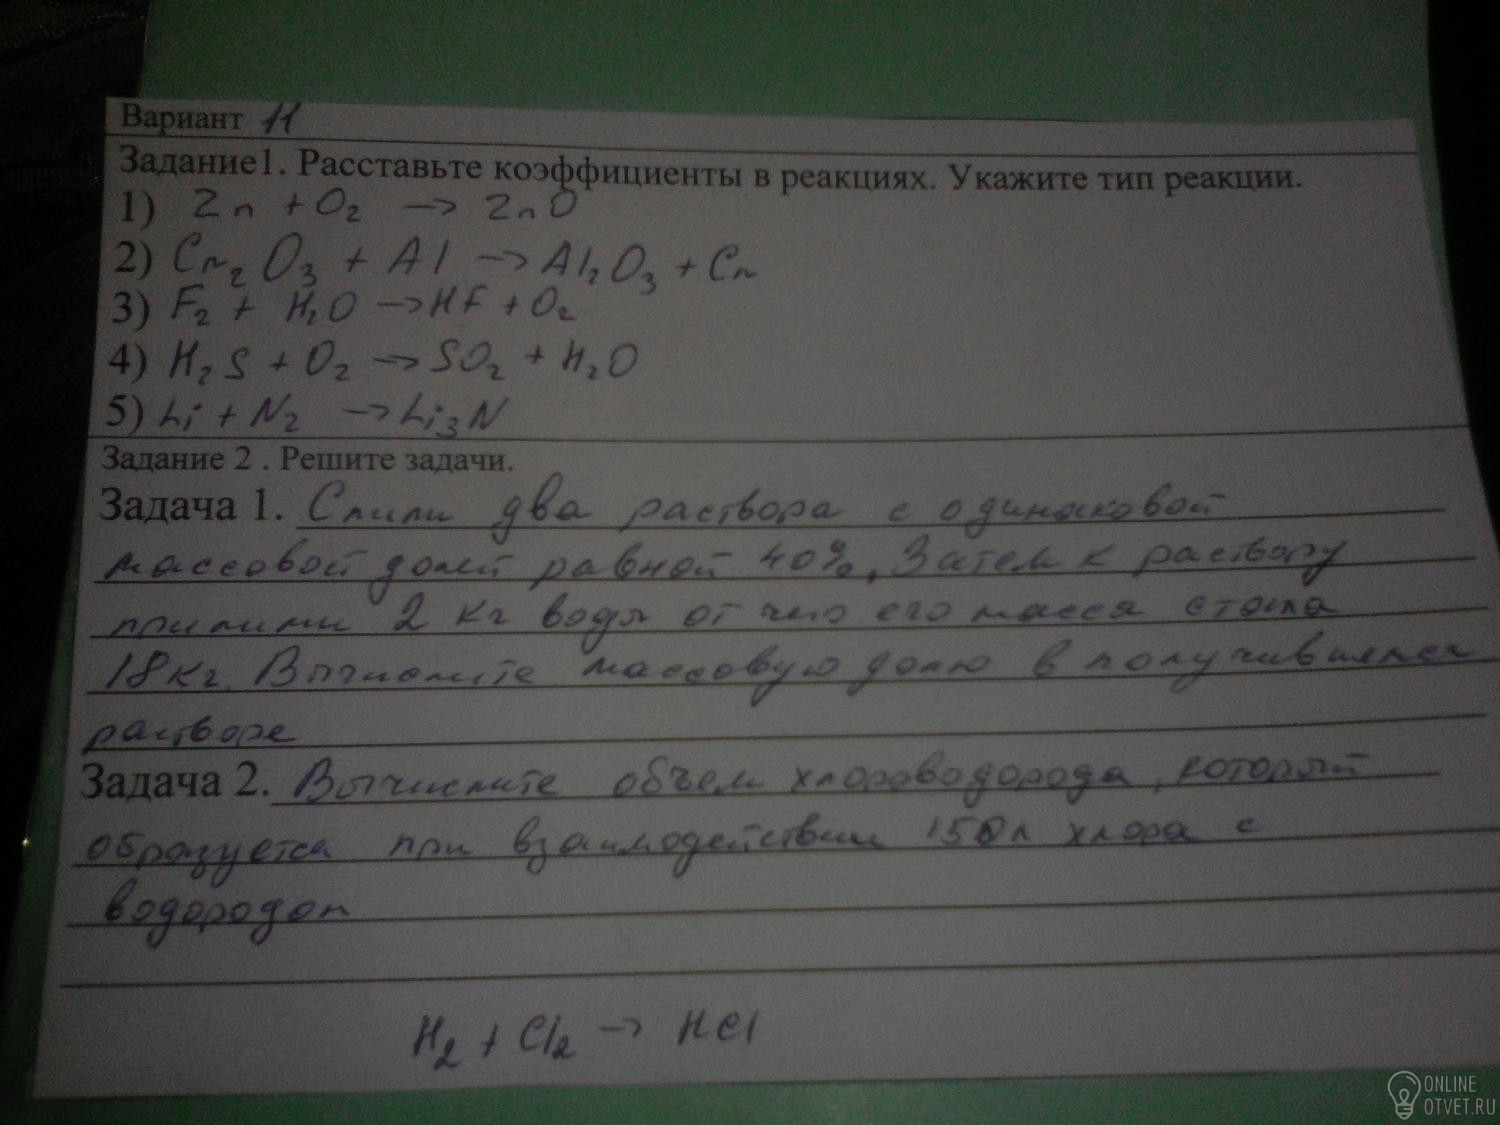 Вариант 11
Задание1. Расставьте коэффициенты в реакциях. Укажите тип реакции.
1) Zn + O₂ → ZnO
2) Cr₂O₃ + Al → Al₂O₃ + Cr
3) F₂ + H₂O → HF + O₂
4) H₂S + O₂ → SO₂ + H₂O
5) Li + N₂ → Li₃N
Задание 2 . Решите задачи.
Задача 1. Слили два раствора с одинаковой
массовой долей равной 40%. Затем к раствору
прилили 2 кг воды от чего его масса стала
18 кг. Вычислите массовую долю в получившемся
растворе
Задача 2. Вычислите объем хлороводорода, который
образуется при взаимодействии 150л хлора с
водородом
H₂ + Cl₂ → HCl
ONLINE
OTVET.RU